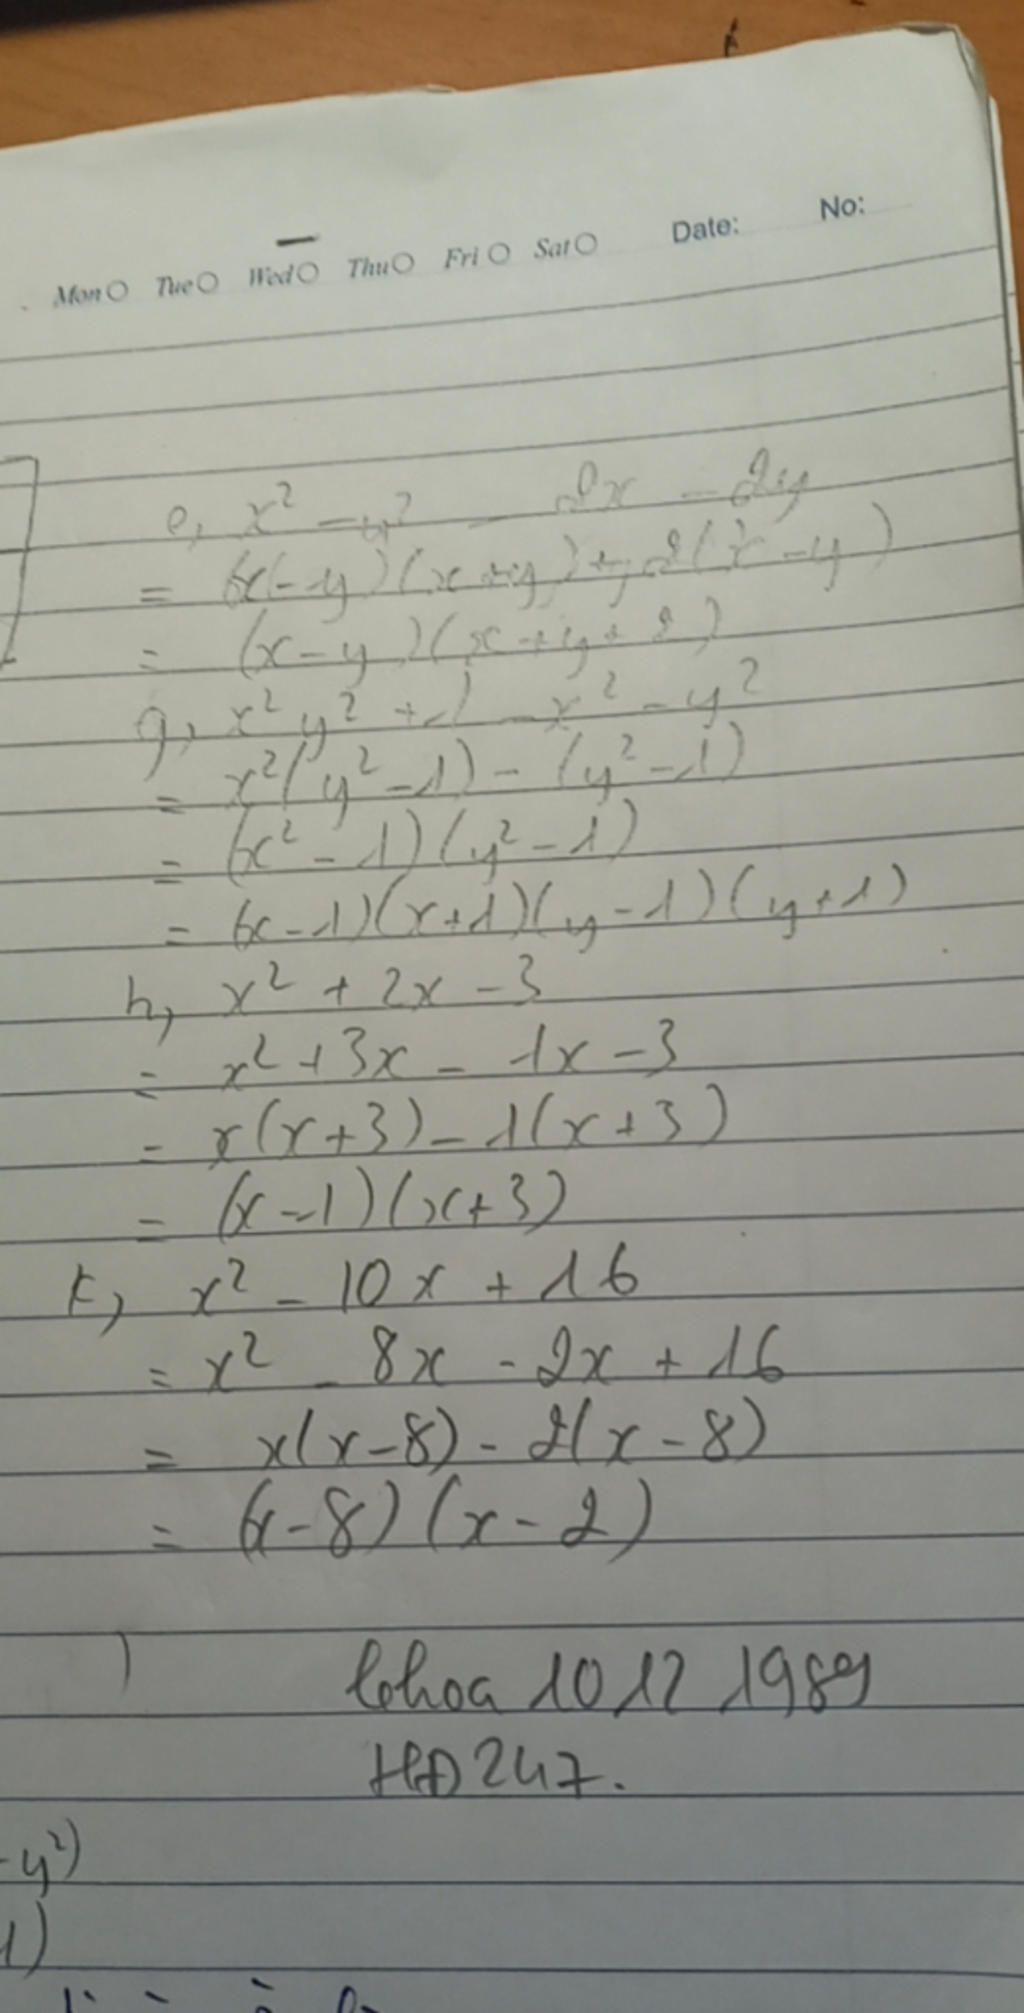 Mon Tue Wed Thu Fri Sat Date: No:
e, x² - y² - 2x - 2y
= (x-y)(x+y)+2(x-y)
= (x-y)(x+y+2)
g, x²y² + 1 - x² - y²
= x²(y²-1) - (y²-1)
= (x²-1)(y²-1)
= (x-1)(x+1)(y-1)(y+1)
h, x² + 2x - 3
= x² + 3x - 1x - 3
= x(x+3) - 1(x+3)
= (x-1)(x+3)
k, x² - 10x + 16
= x² - 8x - 2x + 16
= x(x-8) - 2(x-8)
= (x-8)(x-2)
10 12 1989
247.
-y²)
1)